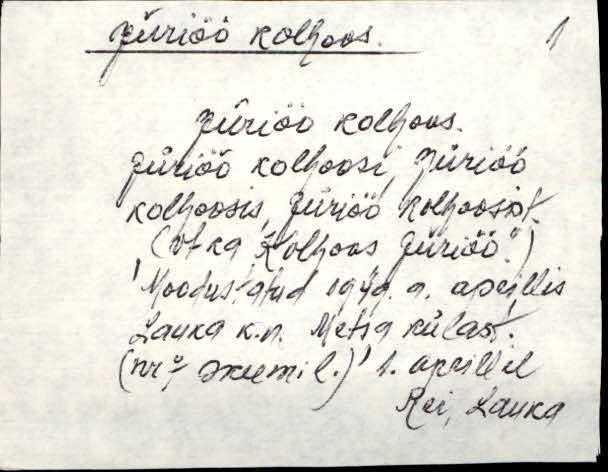 Jüriöö kolhoos. 1
Jüriöö kolhoos.
Jüriöö kolhoosi, Jüriöö
kolhoosis, Jüriöö kolhoosist.
(vt ka "Kolhoos Jüriöö".)
'Moodustatud 1949. a. aprillis
Lauka k.n. Metsa külast.
1. aprillil
Rei, Lauka